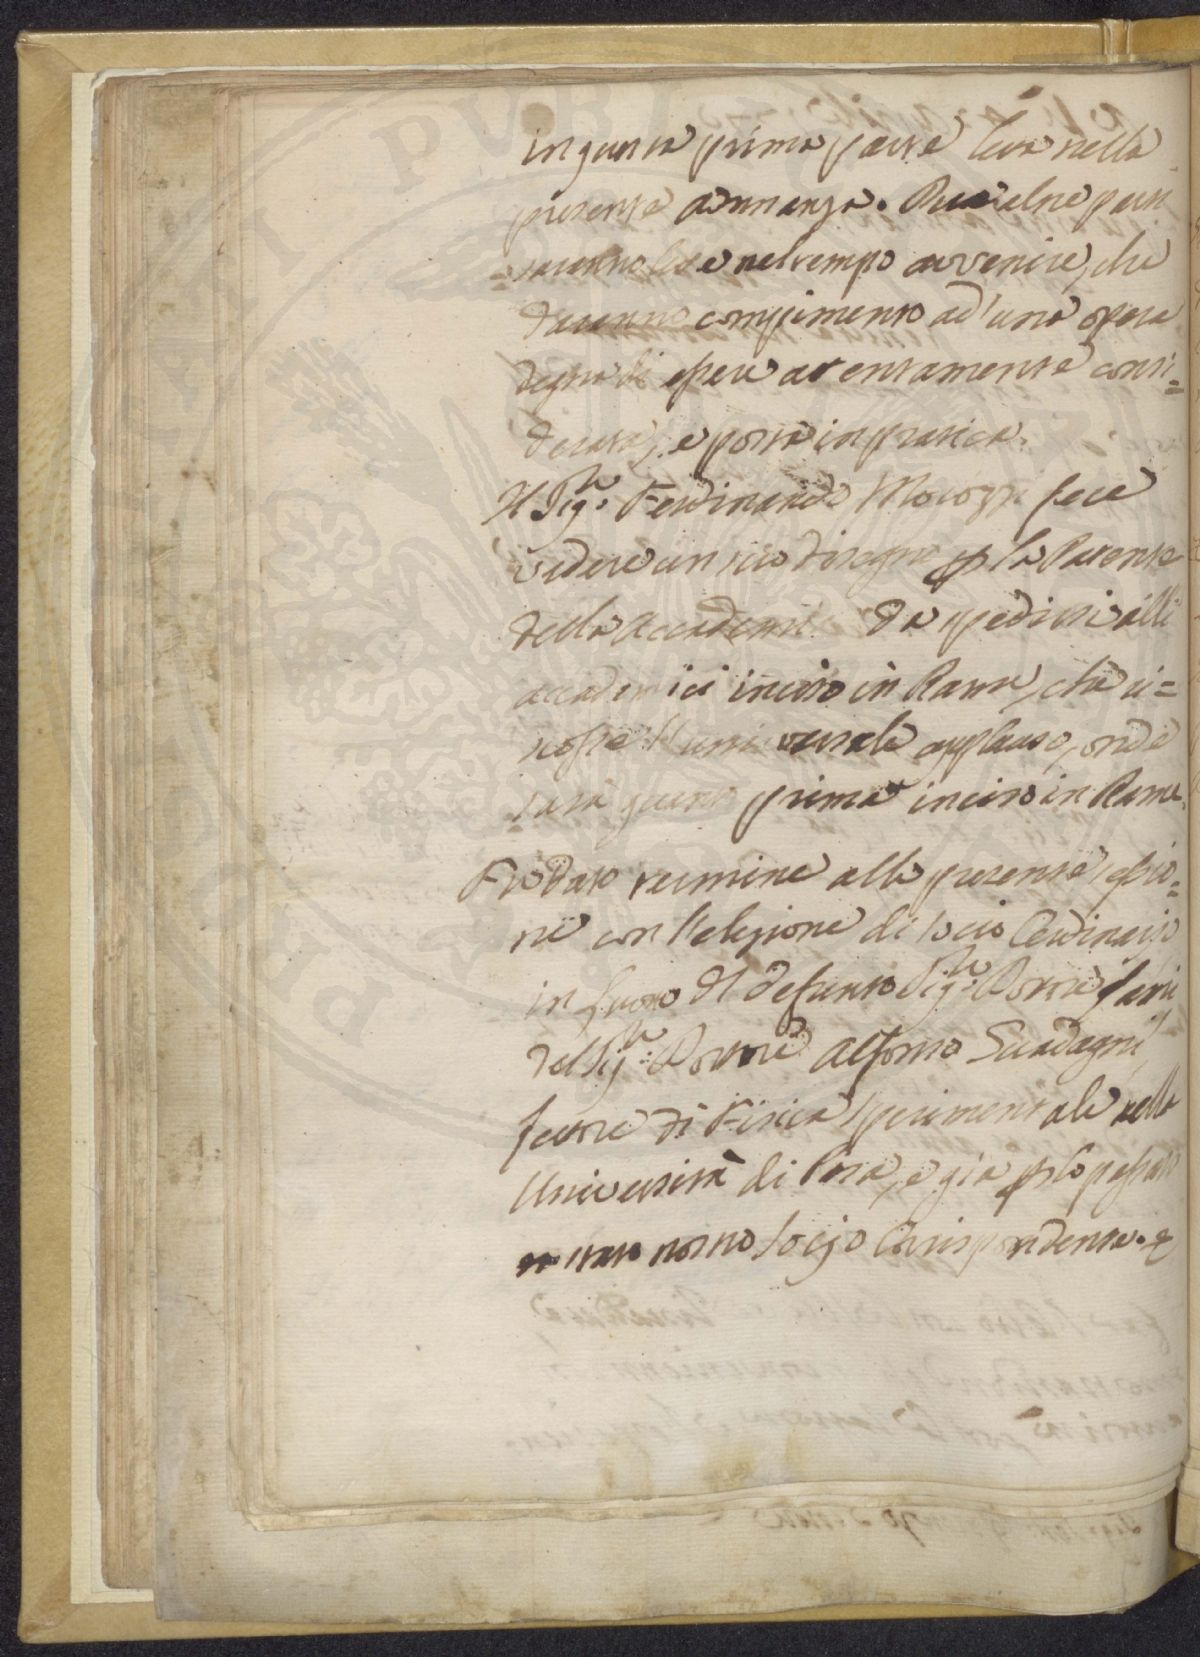 in questa prima parte letta nella
presente adunanza. Due altre parti
saranno lette nel tempo avvenire, che
daranno compimento ad'una opera
degna di essere attentamente consi=
derata, e posta in pratica.
Il Sig.r Ferdinando Morozzi fece
vedere un suo disegno p la Patente
della Accademia da spedirsi alli
accademici inciso in Rame, che ri=
scosse l'universale applauso, onde
sarà quanto prima inciso in Rame.
Fu dato termine alla presente sessio=
ne con l'elezione di socio Ordinario
in luogo del defunto Sig.r Dottore
del Sig.r Dottore Alfonso Guadagni
lettore di Fisica sperimentale nella
Università di Pisa, e già p lo passato
stato nostro Socio Corrispondente.